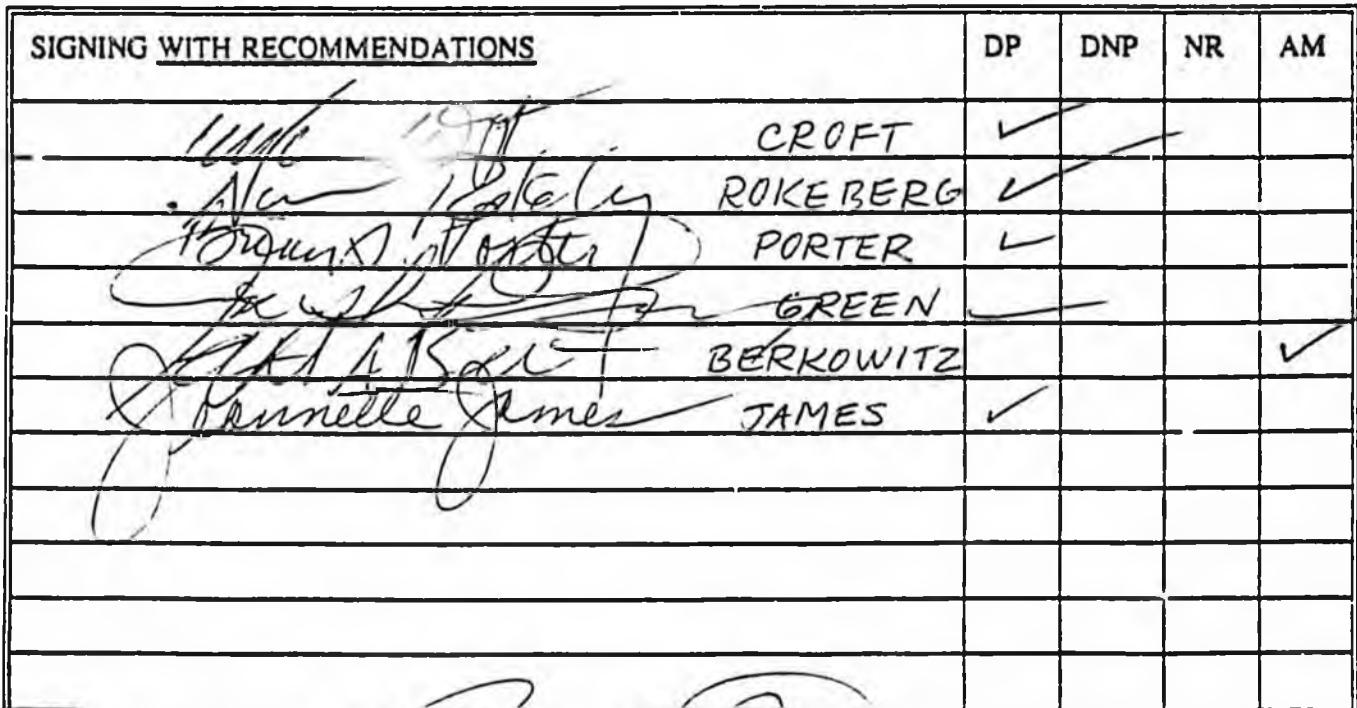 SIGNING WITH RECOMMENDATIONS DP DNP NR AM
CROFT ✓
ROKEBERG ✓
Porter PORTER ✓
GREEN
BERKOWITZ ✓
Jeannette James JAMES ✓